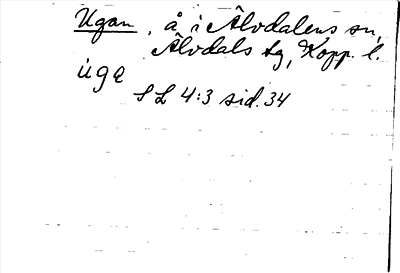 Ugan, å i Älvdalens sn,
Älvdals tg, Kopp. l.
ùgą
SL 4:3 sid. 34